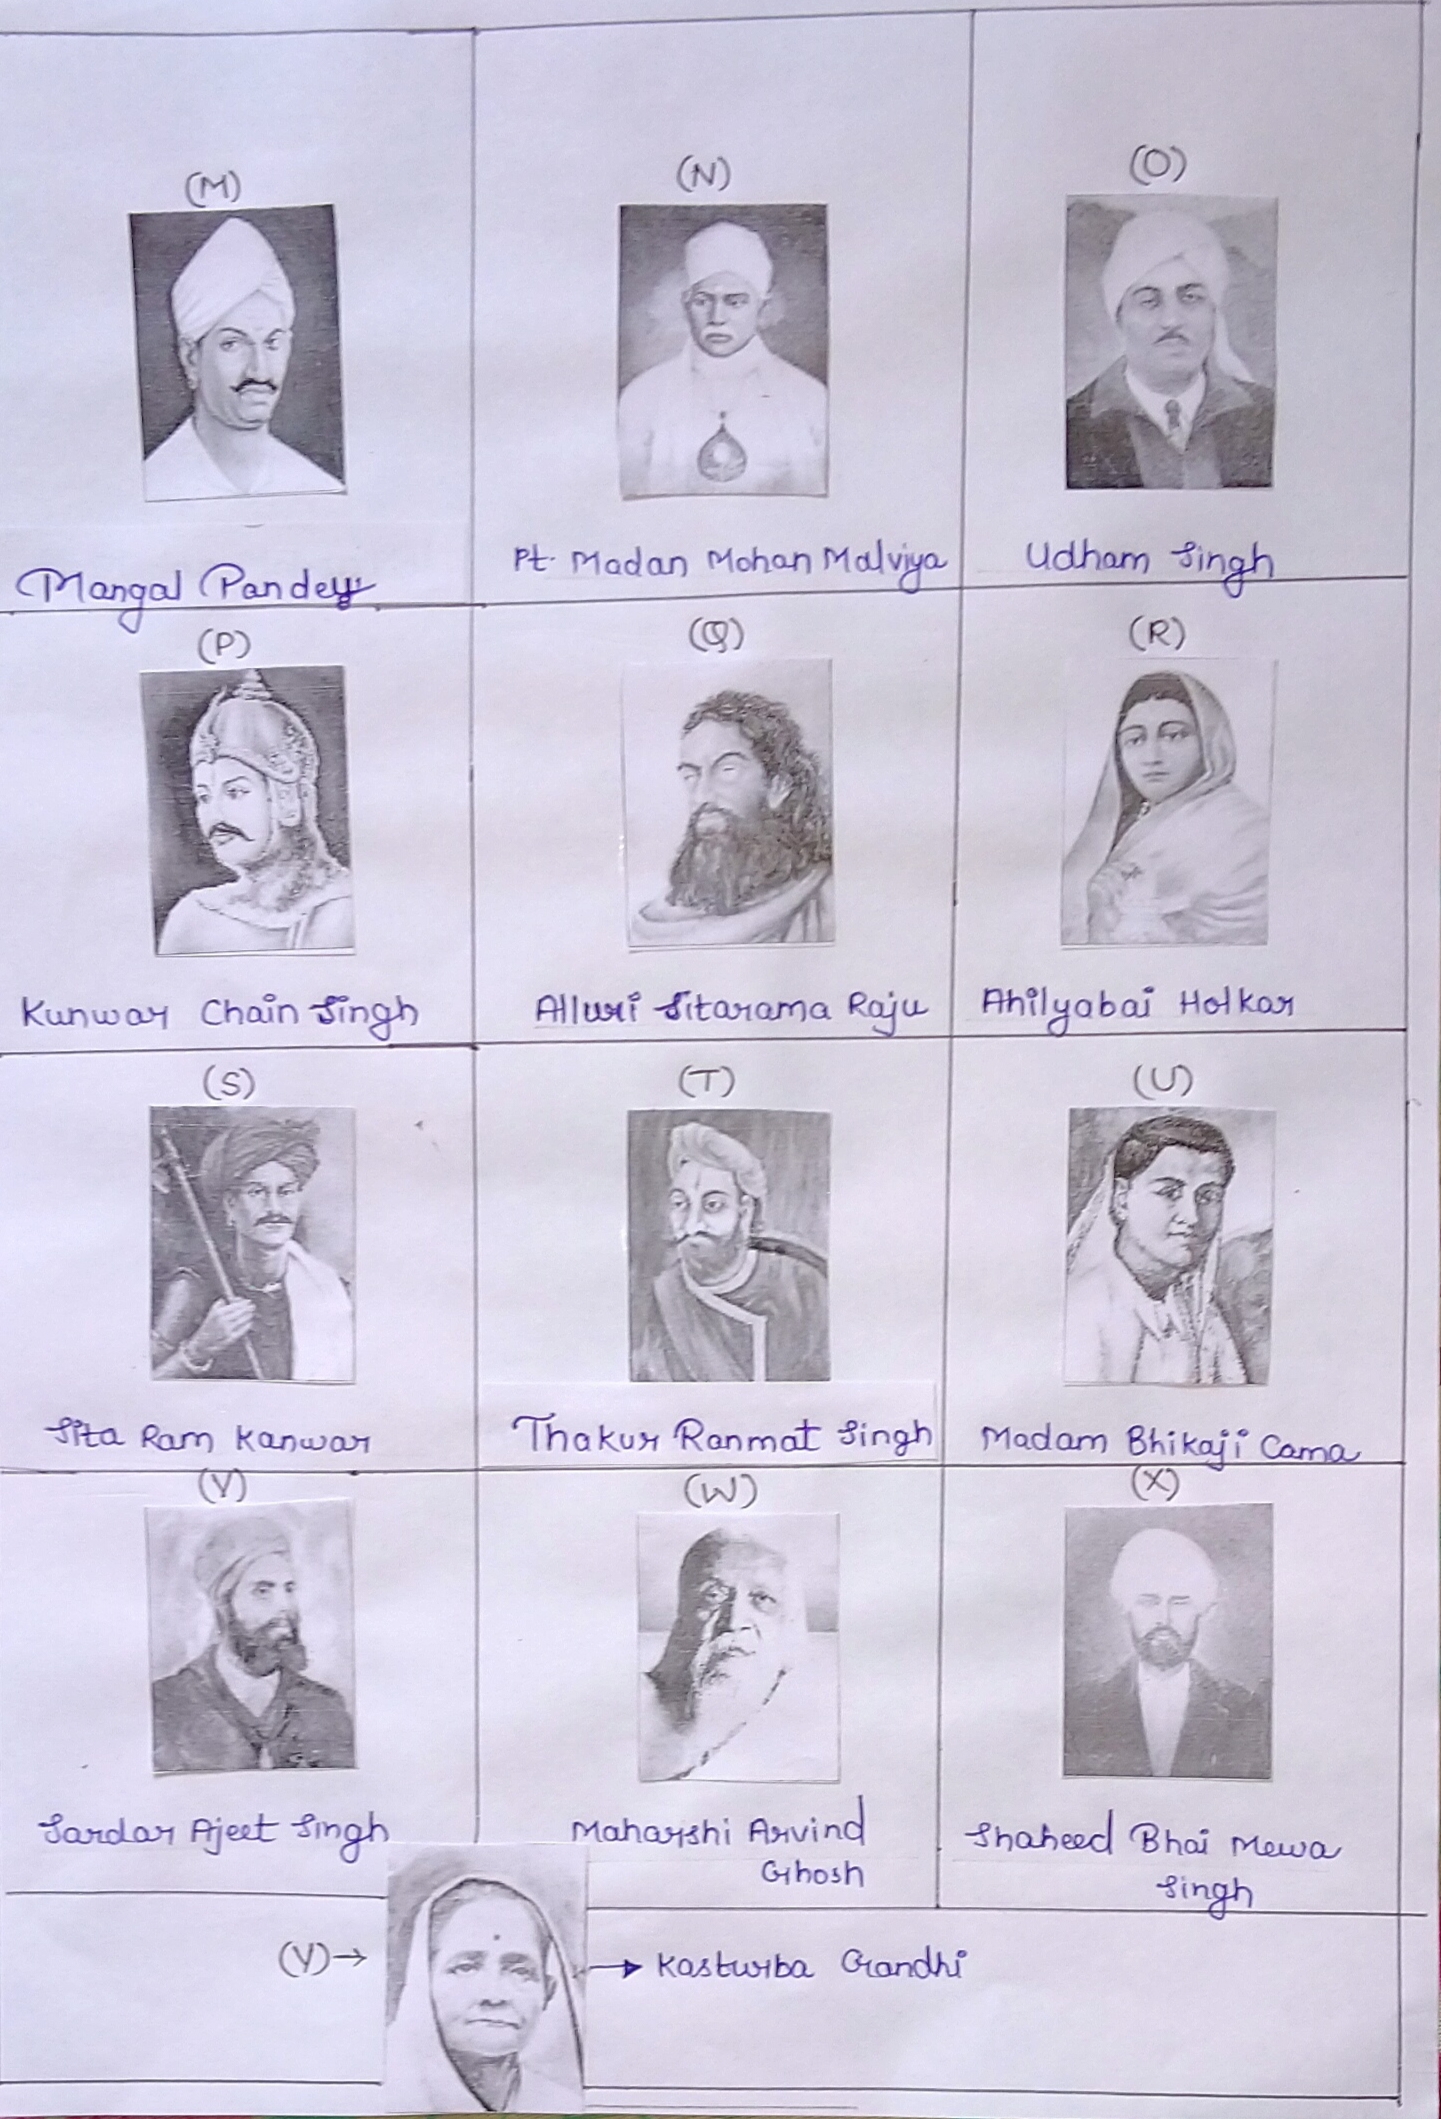 (M)
(N)
(O)
Mangal Pandey
Pt. Madan Mohan Malviya
Udham Singh
(P)
(Q)
(R)
Kunwar Chain Singh
Alluri Sitarama Raju
Ahilyabai Holkar
(S)
(T)
(U)
Sita Ram Kanwar
Thakur Ranmat Singh
Madam Bhikaji Cama
(V)
(W)
(X)
Sardar Ajeet Singh
Maharshi Arvind
Ghosh
Shaheed Bhai Mewa
Singh
(Y)→
→ Kasturba Gandhi